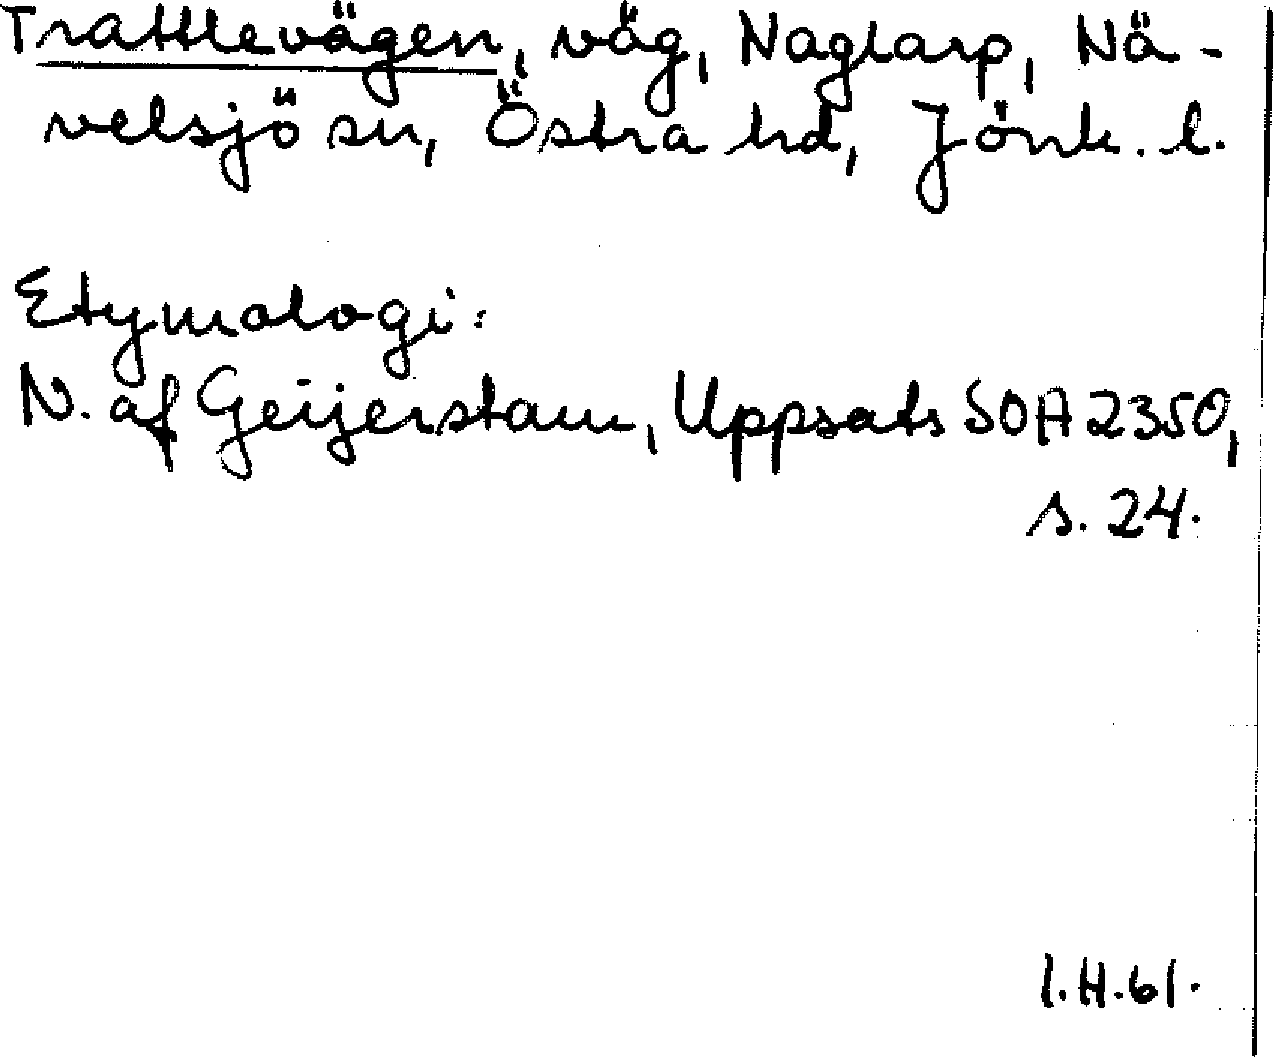 Trattlevägen, väg, Naglarp, Nä-
velsjö sn, Östra hd, Jönk. l.
Etymologi:
N. af Geijerstam, Uppsats SOA 2350,
s. 24.
I.H.61.